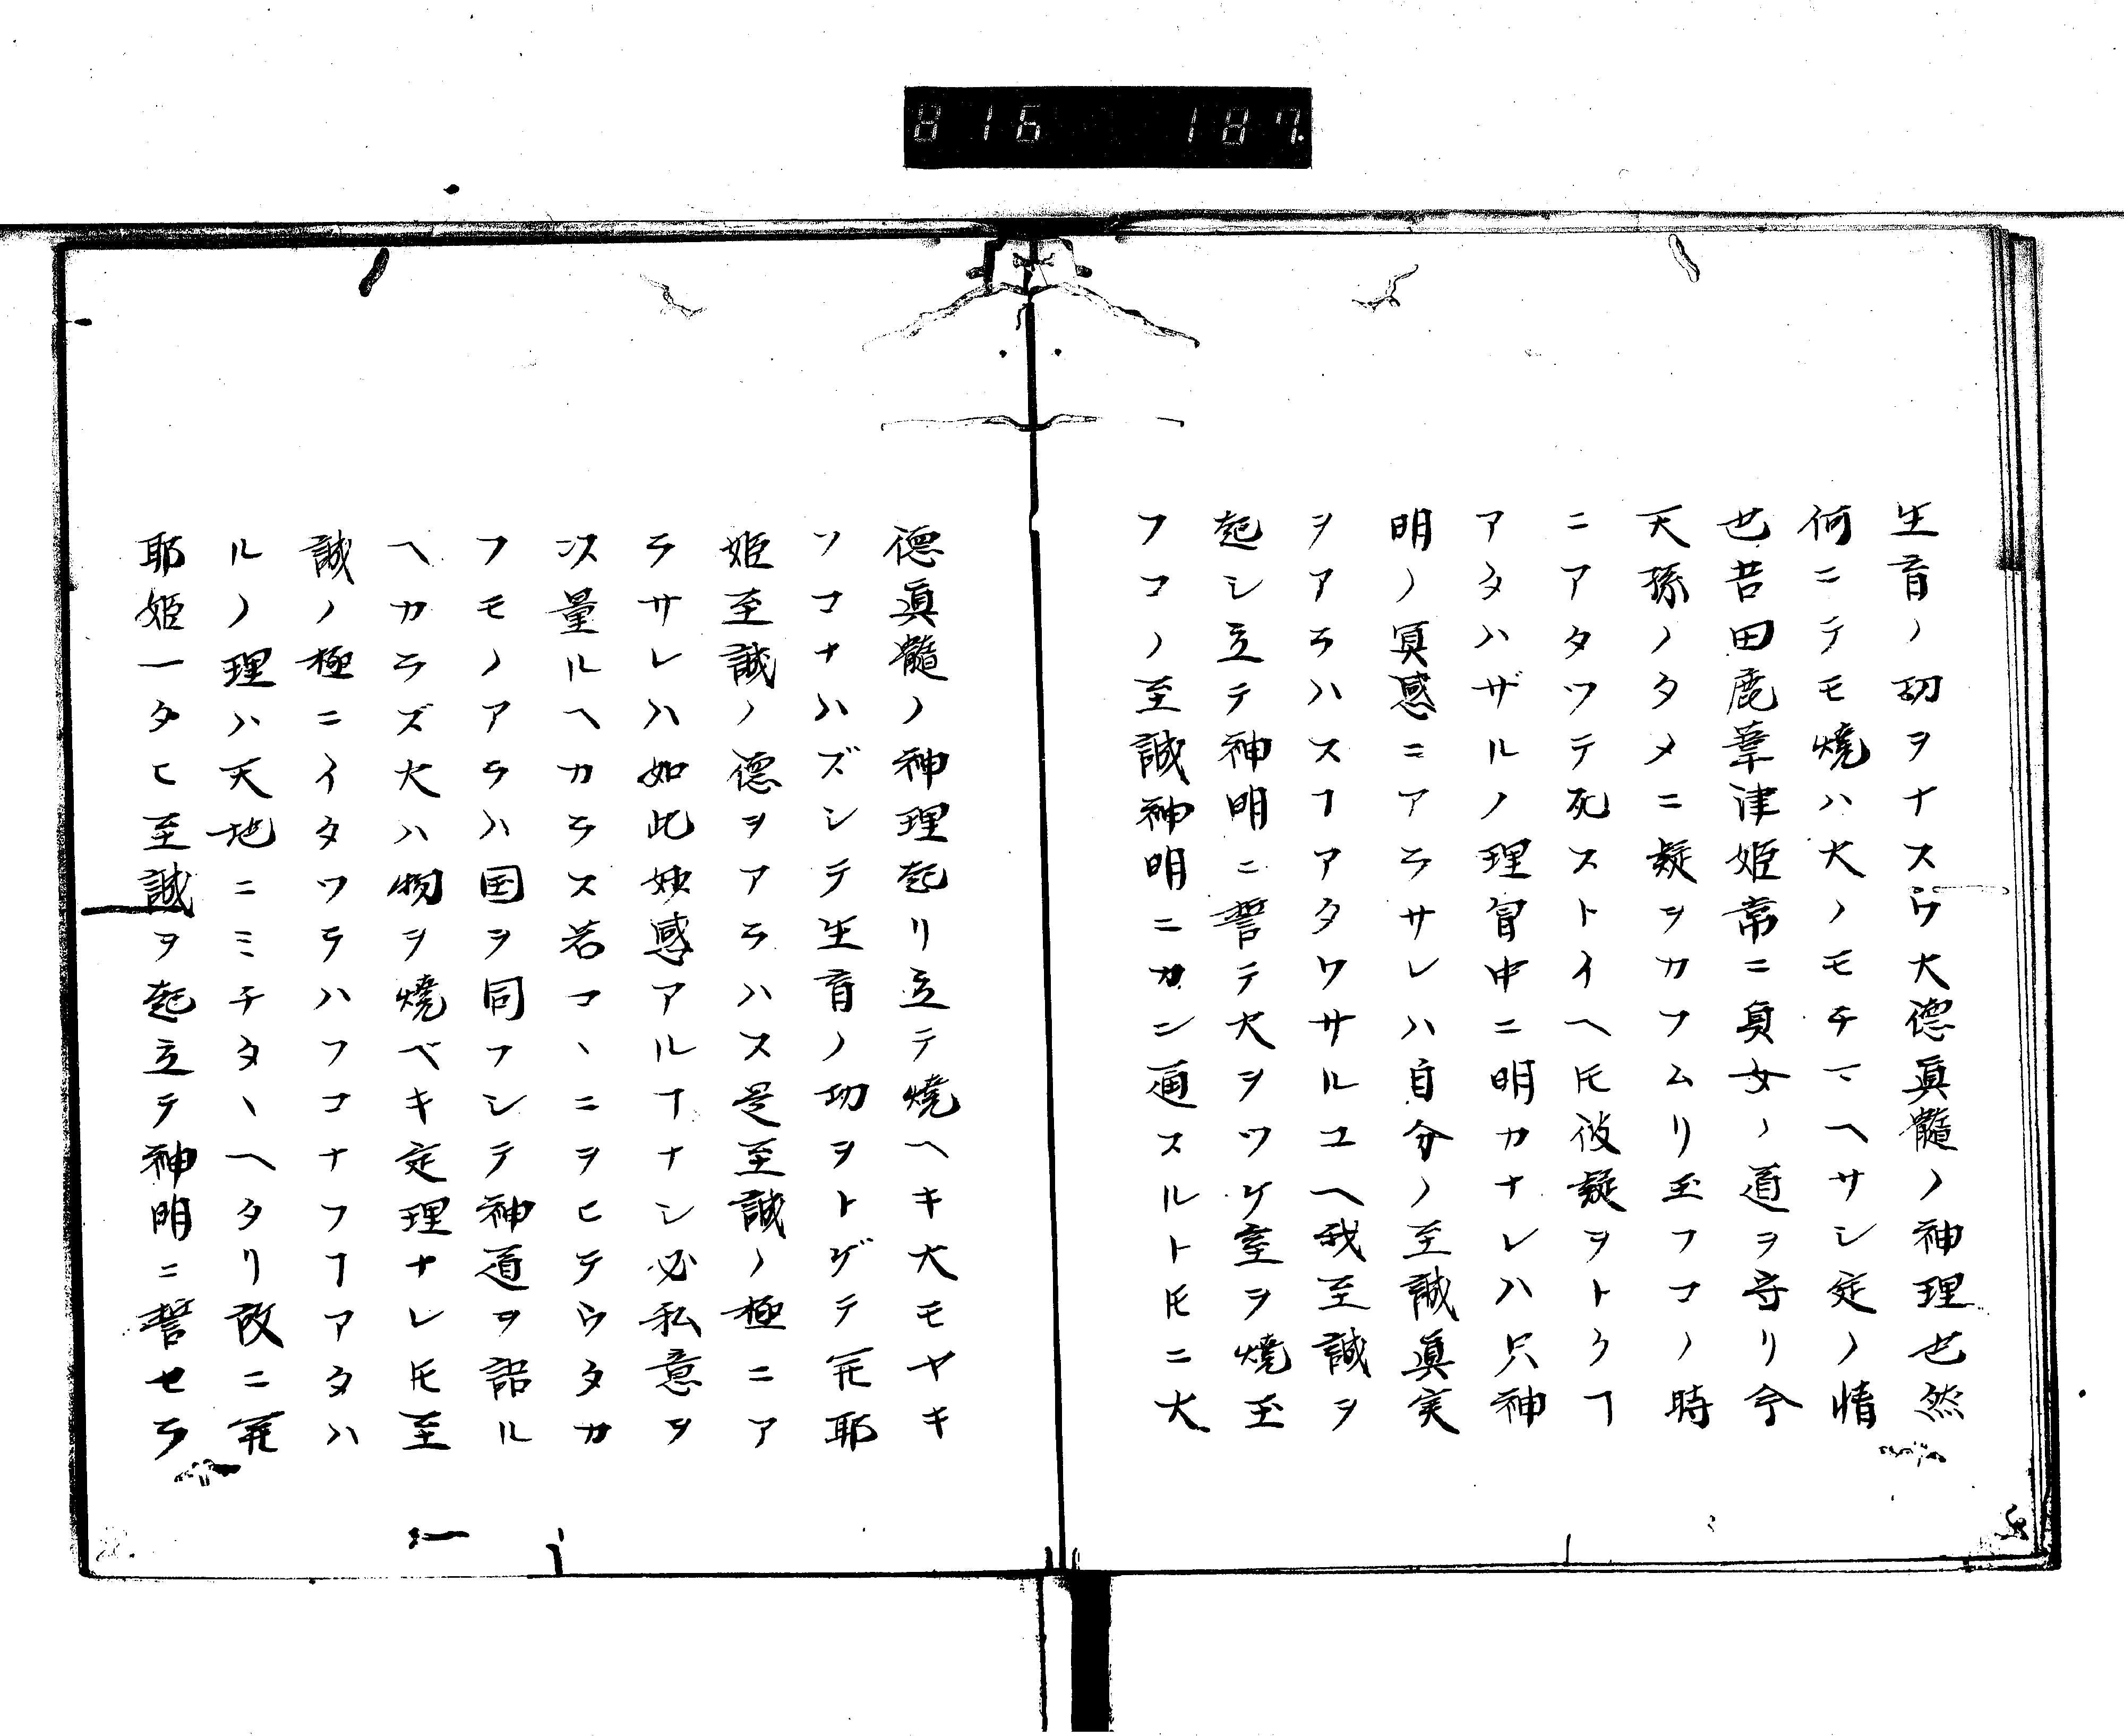 816 187
生育ノ功ヲナスヿ火德眞髓ノ神理也然
何ニテモ燒ハ火ノモチマヘサシ定ノ情
也昔田鹿葦津姫常ニ貞女ノ道ヲ守リ今
天孫ノタメニ疑ヲカフムリ玉フコノ時
ニアタツテ死ストイヘ𪜈彼疑ヲトクヿ
アタハザルノ理冒中ニ明カナレハ只神
明ノ冥感ニアラサレハ自分ノ至誠眞実
ヲアラハスヿアタワサルユヘ我至誠ヲ
起シ立テ神明ニ誓テ火ヲツケ室ヲ燒玉
フコノ至誠神明ニカン通スルト𪜈ニ火
德眞髓ノ神理起リ立テ燒ヘキ火モヤキ
ソコナハズシテ生育ノ功ヲトゲテ𫟉耶
姫至誠ノ德ヲアラハス是至誠ノ極ニア
ラサレハ如此妙感アルヿナシ必私意ヲ
以量ルヘカラス若コヽニヲヒテウタカ
フモノアラハ国ヲ同フシテ神道ヲ語ル
ヘカラズ火ハ物ヲ燒ベキ定理ナレ𪜈至
誠ノ極ニイタツテハフコナフヿアタハ
ルノ理ハ天地ニミチタヽヘタリ故ニ𫟉
耶姫一タヒ至誠ヲ起立テ神明ニ誓セラ